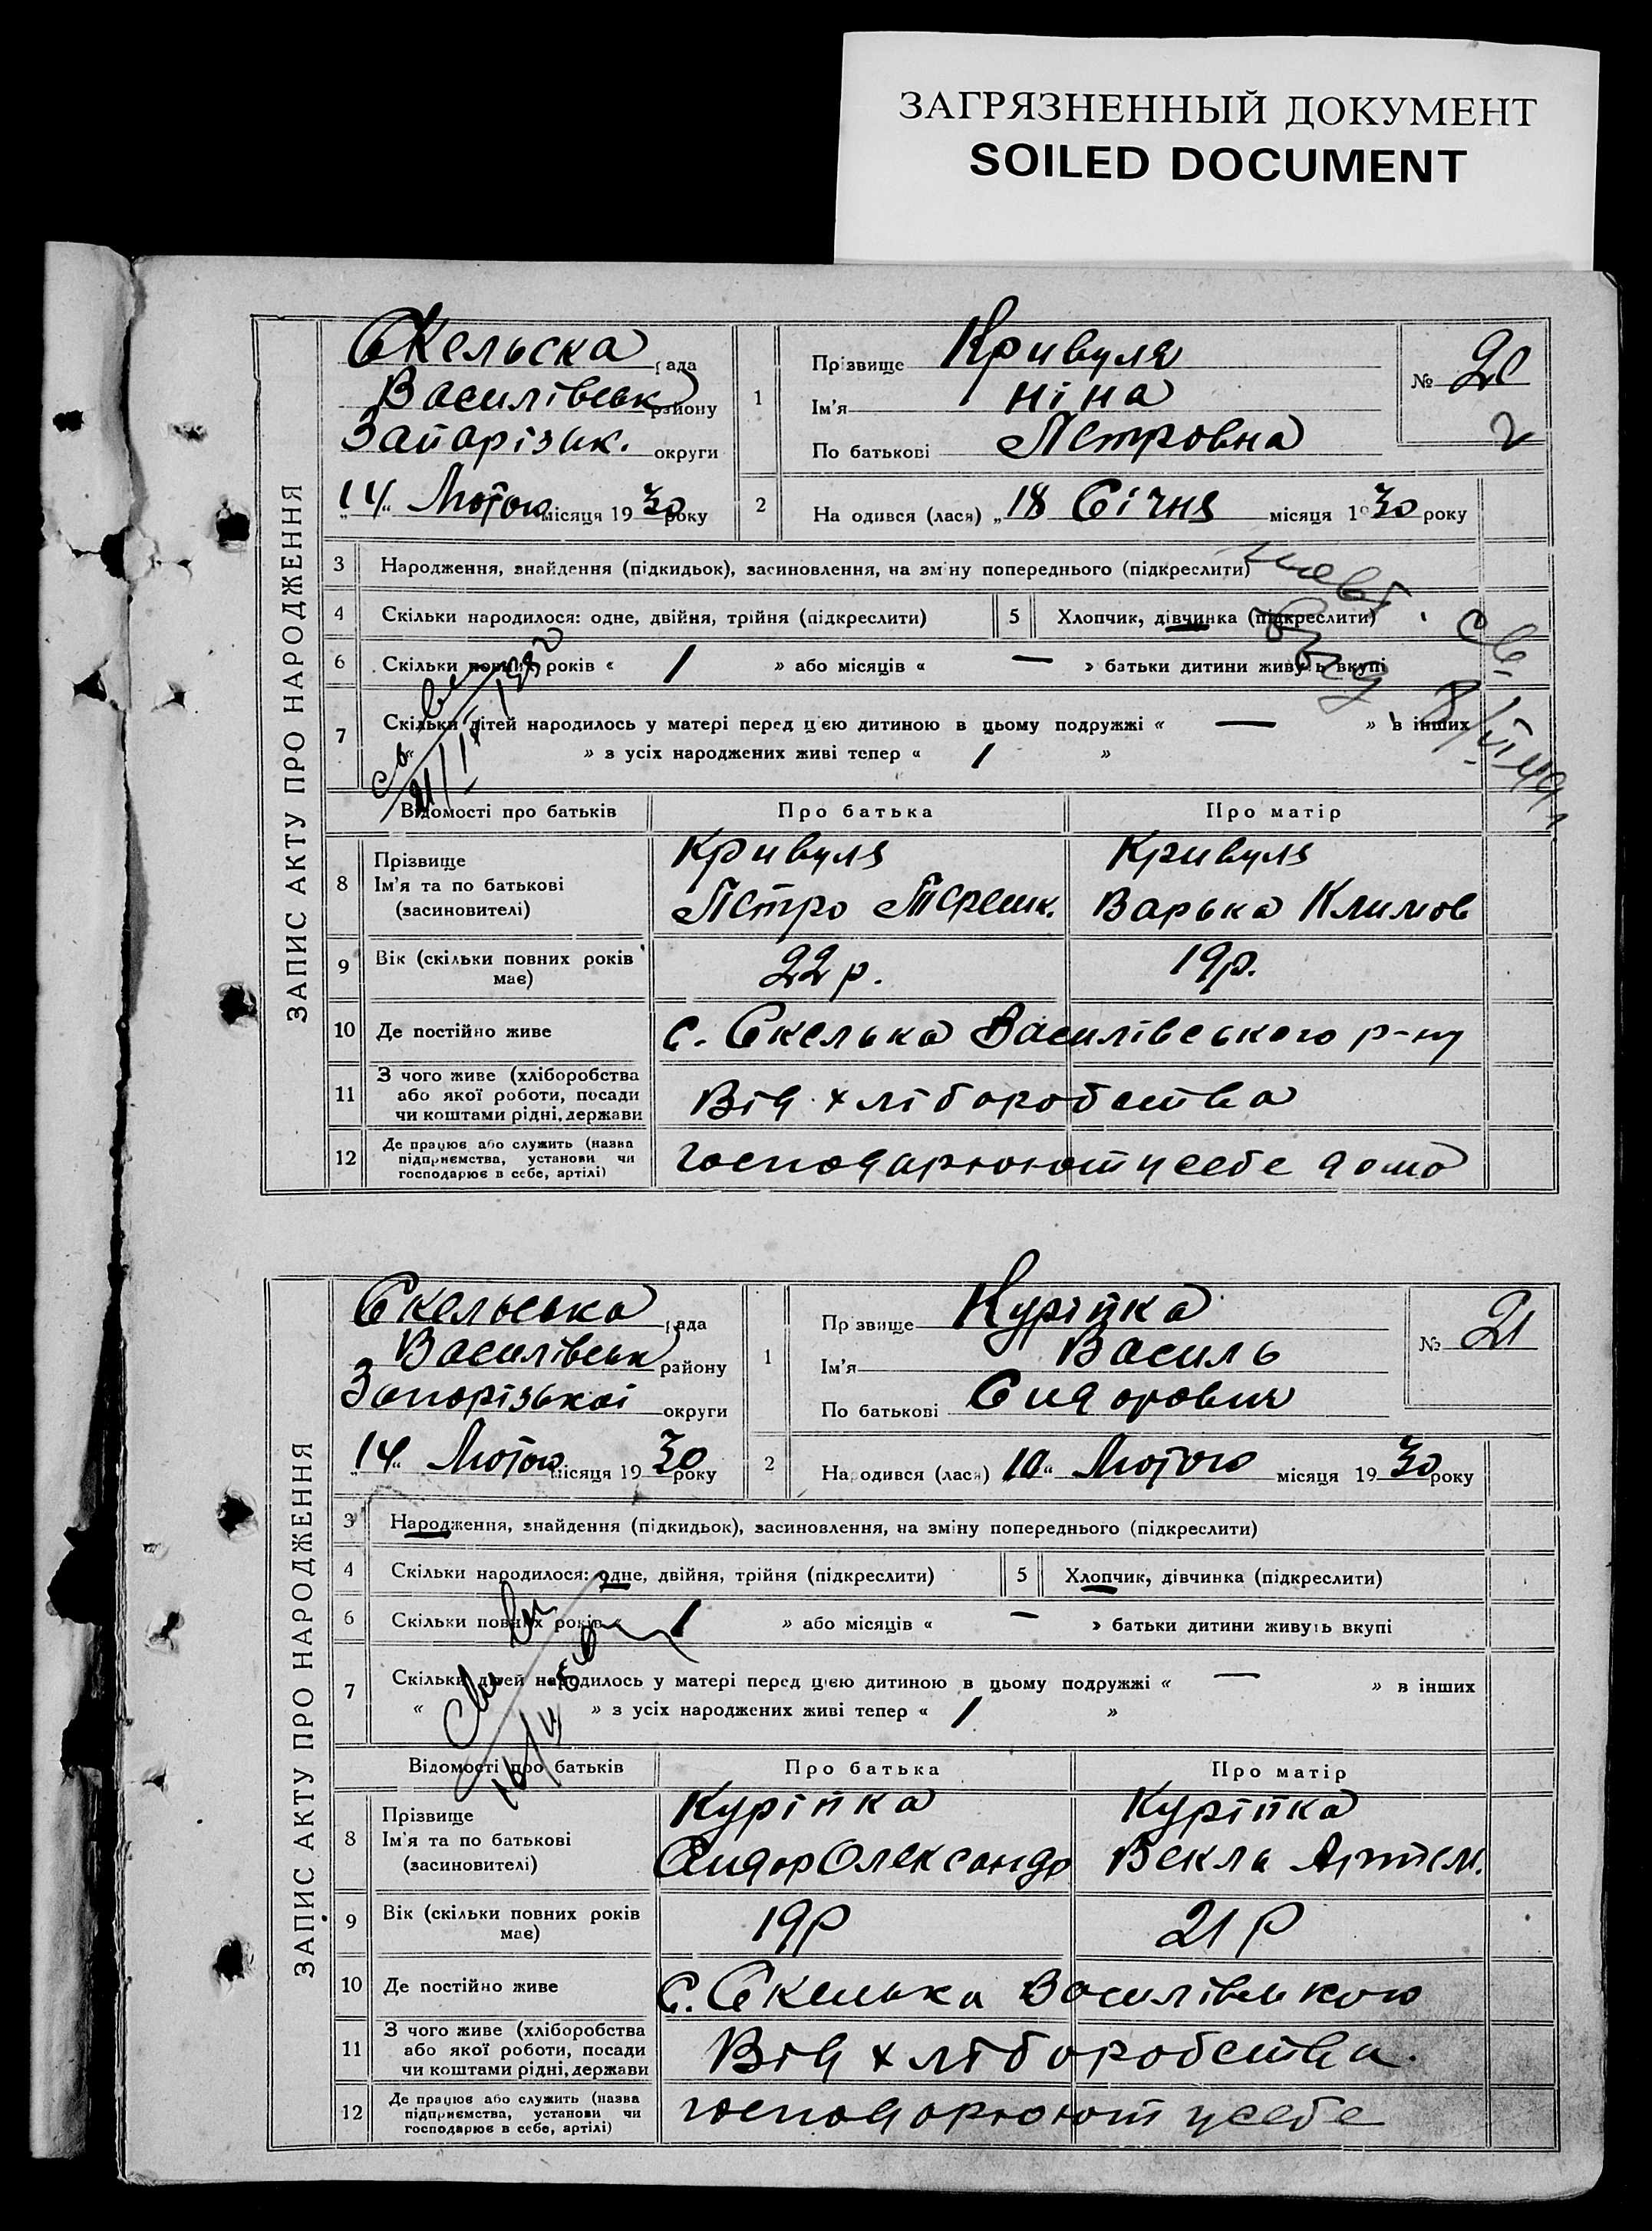 ЗАГРЯЗНЕННЫЙ ДОКУМЕНТ
SOILED DOCUMENT
ЗАПИС АКТУ ПРО НАРОДЖЕННЯ
Скельска рада
Василівськ району
Запорізьк. округи
„14" Лютого місяця 1930 року
1
Прізвище Кривуля
Ім'я Ніна
По батькові Петровна
№ 20
2
2 На одився (лася) „18 Січня місяця 1930 року
3 Народження, знайдення (підкидьок), засиновлення, на зміну попереднього (підкреслити)
4 Скільки народилося: одне, двійня, трійня (підкреслити)
5 Хлопчик, дівчинка (підкреслити)
6 Скільки повних років « 1 » або місяців « — » батьки дитини живуть вкупі
7 Скільки дітей народилось у матері перед цією дитиною в цьому подружжі « — » в інших
» з усіх народжених живі тепер « 1 »
Відомості про батьків
Про батька
Про матір
8 Прізвище
Ім'я та по батькові
(засиновителі)
Кривуля
Петро Терешк.
Кривуля
Варька Климов
9 Вік (скільки повних років
має)
22 р.
19р.
10 Де постійно живе
с. Скелька Василівського р-ну
11 З чого живе (хліборобства
або якої роботи, посади
чи коштами рідні, держави
Від хліборобства
12 Де працює або служить (назва
підприємства, установи чи
господарює в себе, артілі)
господарюют у себе дома
ЗАПИС АКТУ ПРО НАРОДЖЕННЯ
Скельська рада
Василівськ району
Запорізькоі округи
„14" Лютого місяця 1930 року
1
Прізвище Куріпка
Ім'я Василь
По батькові Сидорович
№ 21
2 Народився (лася) 10" Лютого місяця 1930 року
3 Народження, знайдення (підкидьок), засиновлення, на зміну попереднього (підкреслити)
4 Скільки народилося: одне, двійня, трійня (підкреслити)
5 Хлопчик, дівчинка (підкреслити)
6 Скільки повних років « 1 » або місяців « — » батьки дитини живуть вкупі
7 Скільки дітей народилось у матері перед цією дитиною в цьому подружжі « — » в інших
« » з усіх народжених живі тепер « 1 »
Відомості про батьків
Про батька
Про матір
8 Прізвище
Ім'я та по батькові
(засиновителі)
Куріпка
Сидор Олександр
Куріпка
Векла Артем.
9 Вік (скільки повних років
має)
19р
21 р
10 Де постійно живе
С. Скелька Василівького
11 З чого живе (хліборобства
або якої роботи, посади
чи коштами рідні, держави
Від хліборобства.
12 Де працює або служить (назва
підприємства, установи чи
господарює в себе, артілі)
господарюют у себе